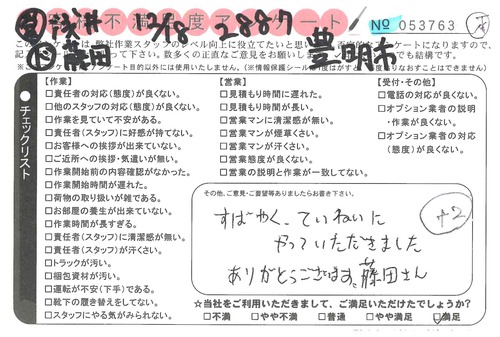 お客様不満足度アンケート
№ 053763
営 浅井 12/18 2887
豊明市
藤田
このアンケートは、弊社作業スタッフのレベル向上に役立てたいと思い、
チェックリスト
【作業】
□責任者の対応(態度)が良くない。
□他のスタッフの対応(態度)が良くない。
□作業を見ていて不安がある。
□責任者(スタッフ)に好感が持てない。
□お客様への挨拶が出来ていない。
□ご近所への挨拶・気遣いが無い。
□作業開始前の内容確認がなかった。
□作業開始時間が遅れた。
□荷物の取り扱いが雑である。
□お部屋の養生が出来ていない。
□作業時間が長すぎる。
□責任者(スタッフ)に清潔感が無い。
□責任者(スタッフ)が汗くさい。
□トラックが汚い。
□梱包資材が汚い。
□運転が不安(下手)である。
□靴下の履き替えをしてない。
□スタッフにやる気がみられない。
【営業】
□見積もり時間に遅れた。
□見積もり時間が長い。
□営業マンに清潔感が無い。
□営業マンが煙草くさい。
□営業マンが汗くさい。
□営業態度が良くない。
□営業の説明と作業が一致してない。
【受付・その他】
□電話の対応が良くない。
□オプション業者の説明
・作業が良くない。
□オプション業者の対応
(態度)が良くない。
その他、ご意見・ご要望等ありましたらお書き下さい。
すばやく、ていねいに
やっていただきました
ありがとうございます。藤田さん
+2
☆当社をご利用いただきまして、ご満足いただけたでしょうか?
□不満 □やや不満 □普通 □やや満足 □満足